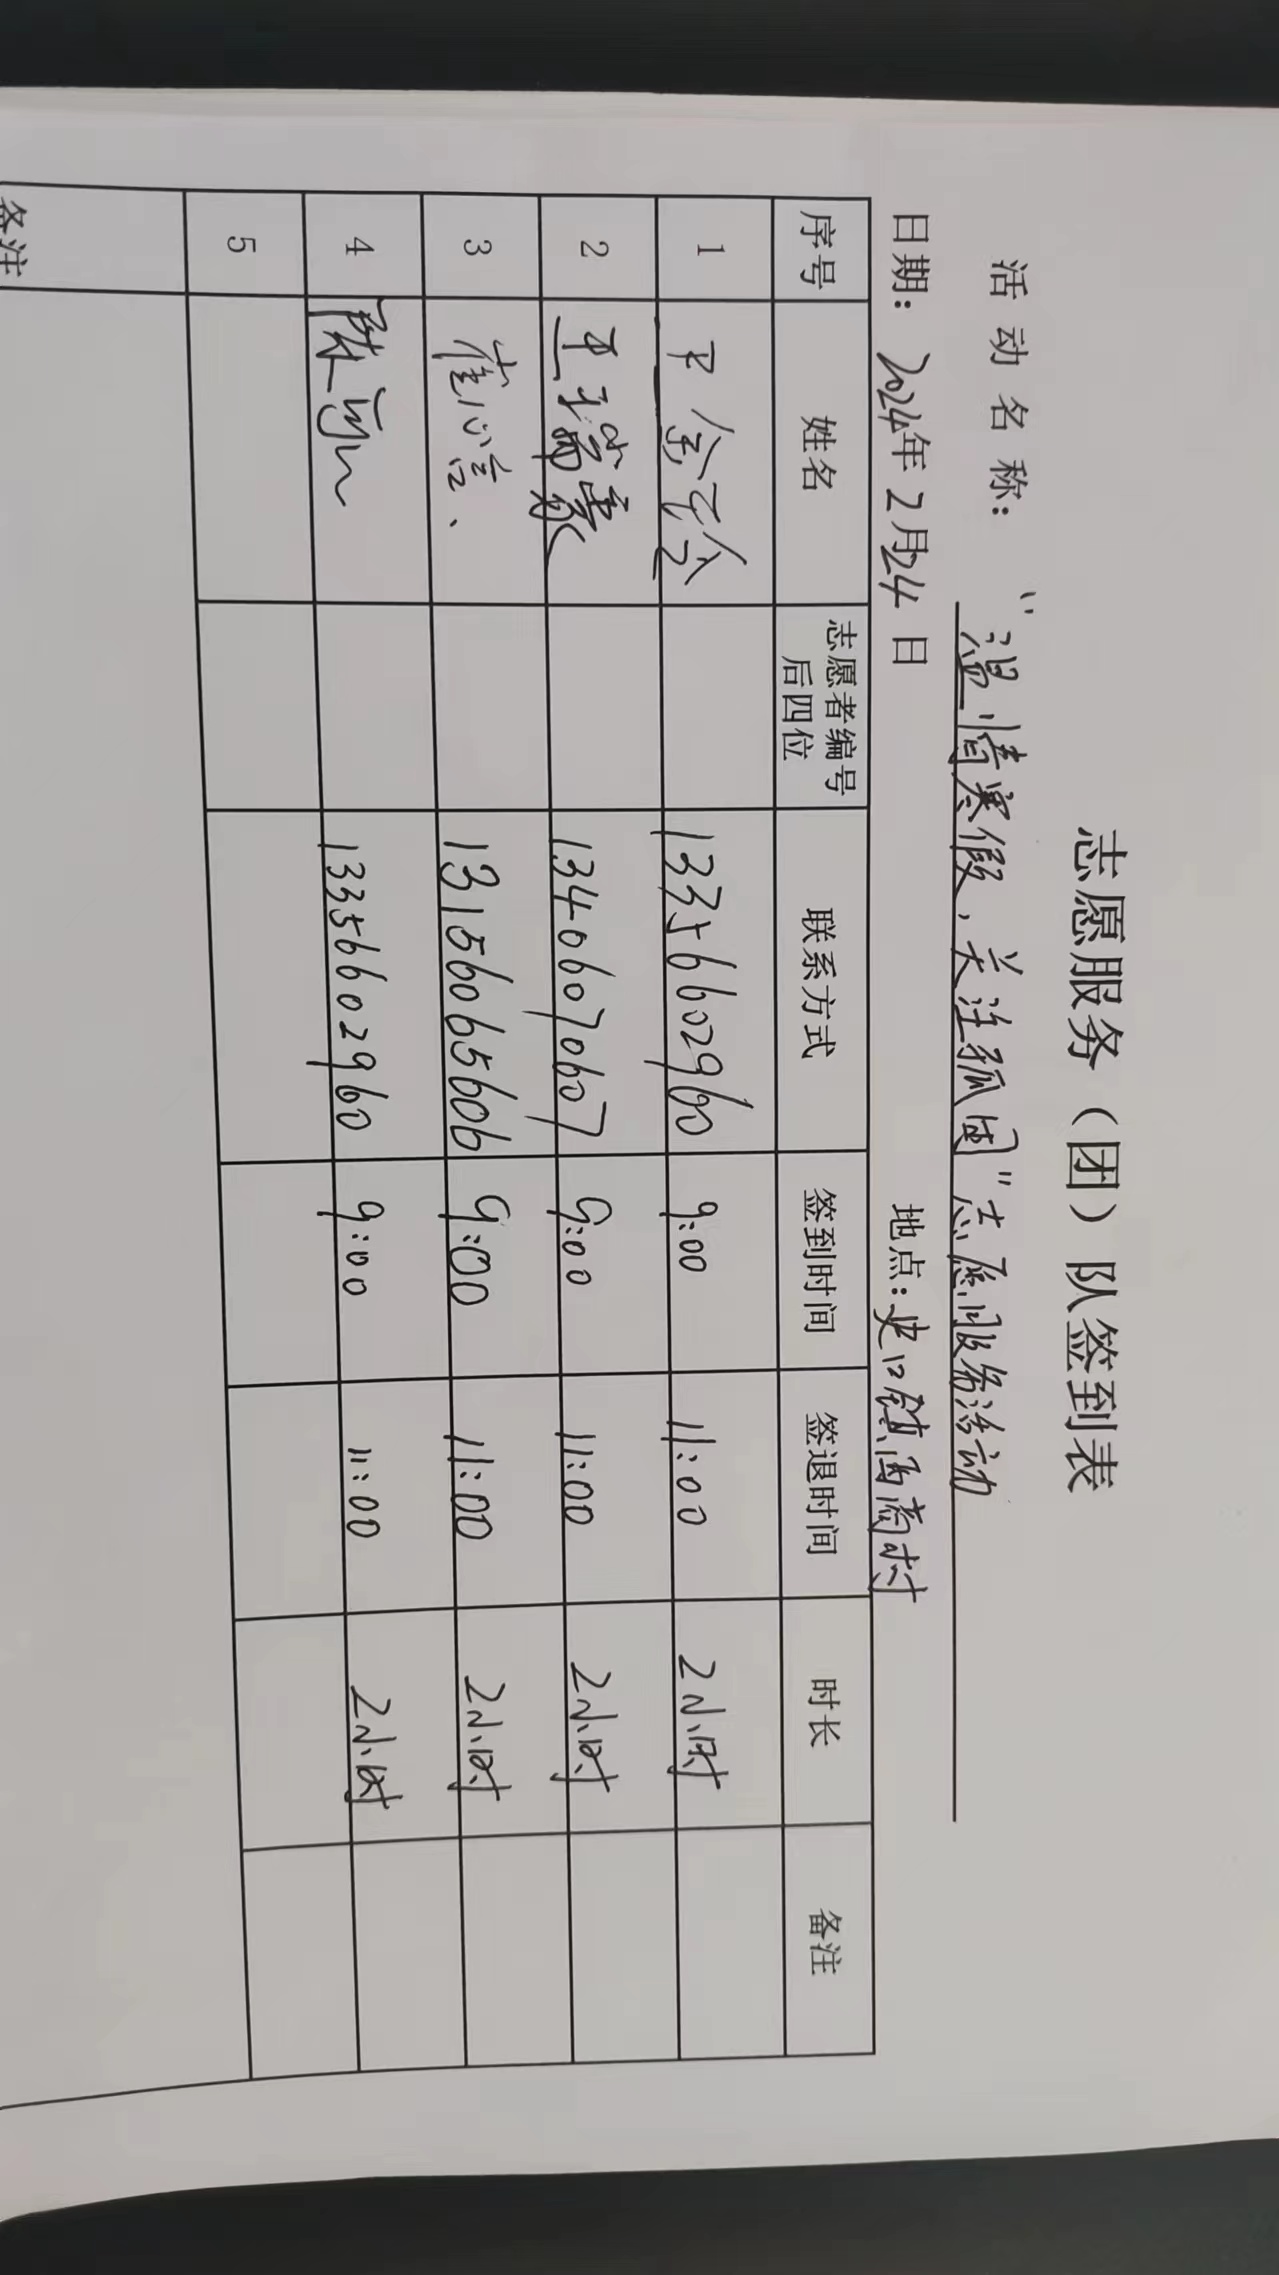 志愿服务（团）队签到表
活动名称：“温情寒假，关注孤困”志愿服务活动
日期：2024年2月24日 地点：史口镇高商村
序号 姓名 志愿者编号后四位 联系方式 签到时间 签退时间 时长 备注
1 13356602960 9:00 11:00 2小时
2 王瑞豪 134066070607 9:00 11:00 2小时
3 崔心言 13156065606 9:00 11:00 2小时
4 13356602960 9:00 11:00 2小时
5
备注